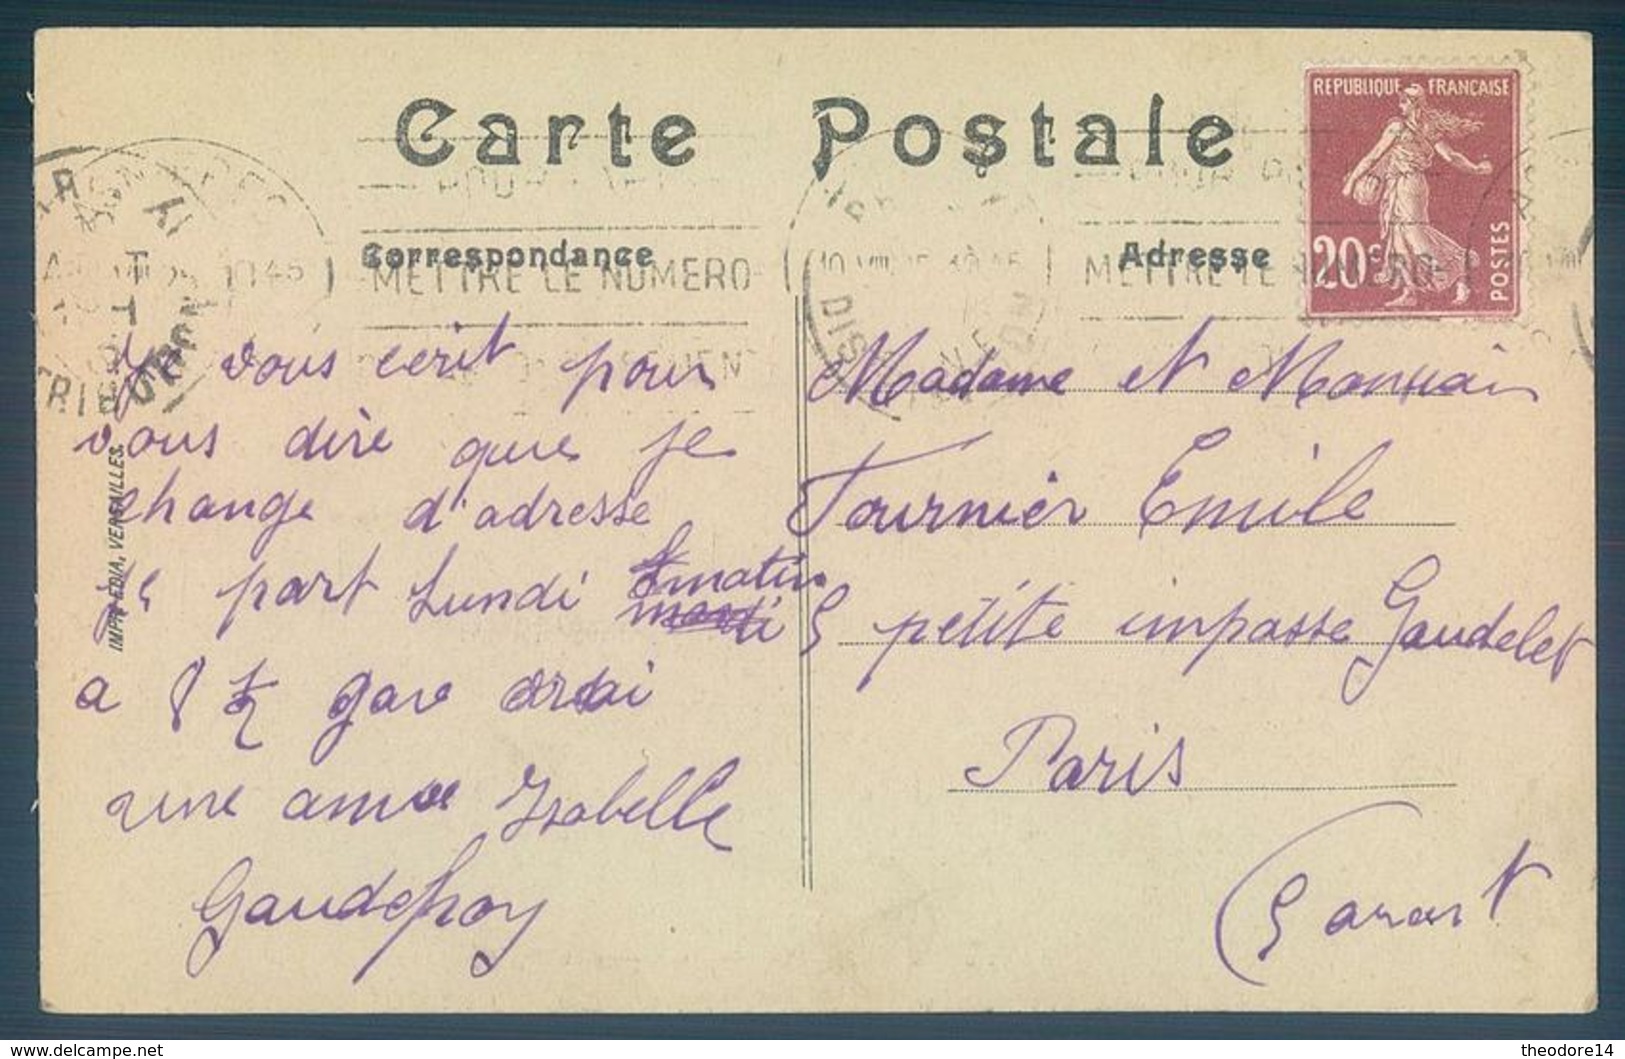 Carte Postale
Correspondance
Adresse
REPUBLIQUE FRANÇAISE
20c
POSTES
METTRE LE NUMERO
METTRE LE NUMERO
10 VIII 10 45
DISTRIBUTION
IMPR. EDIA, VERSAILLES.
Je vous ecrit pour
vous dire que je
change d'adresse
je part Lundi matin
a 8 ½ gare
une amie Isabelle
Gaudefroy
Madame et
Fournier Emile
5 petite impasse Gaudelet
Paris
theodore14